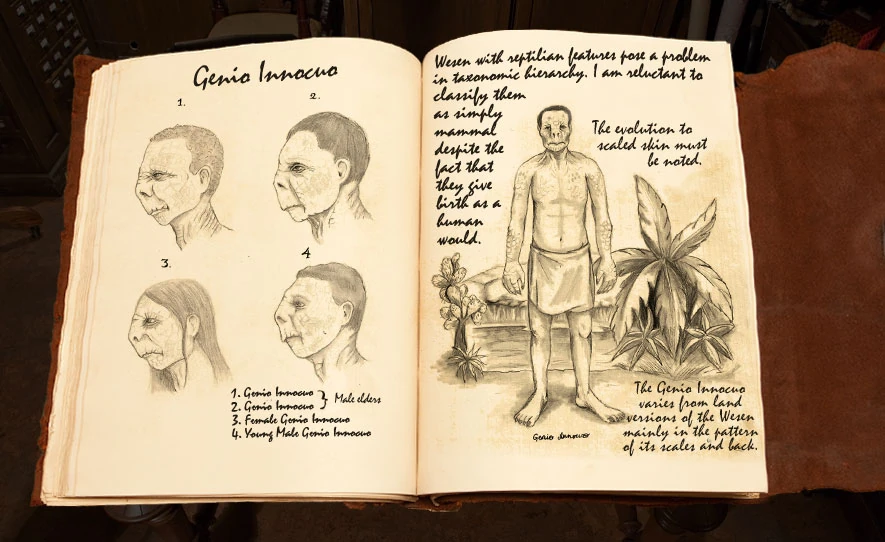 Genio Innocuo
1.
2.
3.
4
1. Genio Innocuo
2. Genio Innocuo
Male elders
3. Female Genio Innocuo
4. Young Male Genio Innocuo
Wesen with reptilian features pose a problem
in taxonomic hierarchy. I am reluctant to
classify them
as simply
mammal
despite the
fact that
they give
birth as a
human
would.
The evolution to
scaled skin must
be noted.
Genio Innocuo
The Genio Innocuo
varies from land
versions of the Wesen
mainly in the pattern
of its scales and back.